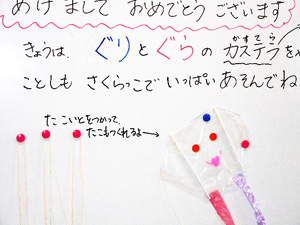 あけまして おめでとう ございます
きょうは、ぐりとぐらの カステラを
かすてら
ことしも さくらっこで いっぱい あそんでね
たこいとをつかって、
たこもつくれるよ→